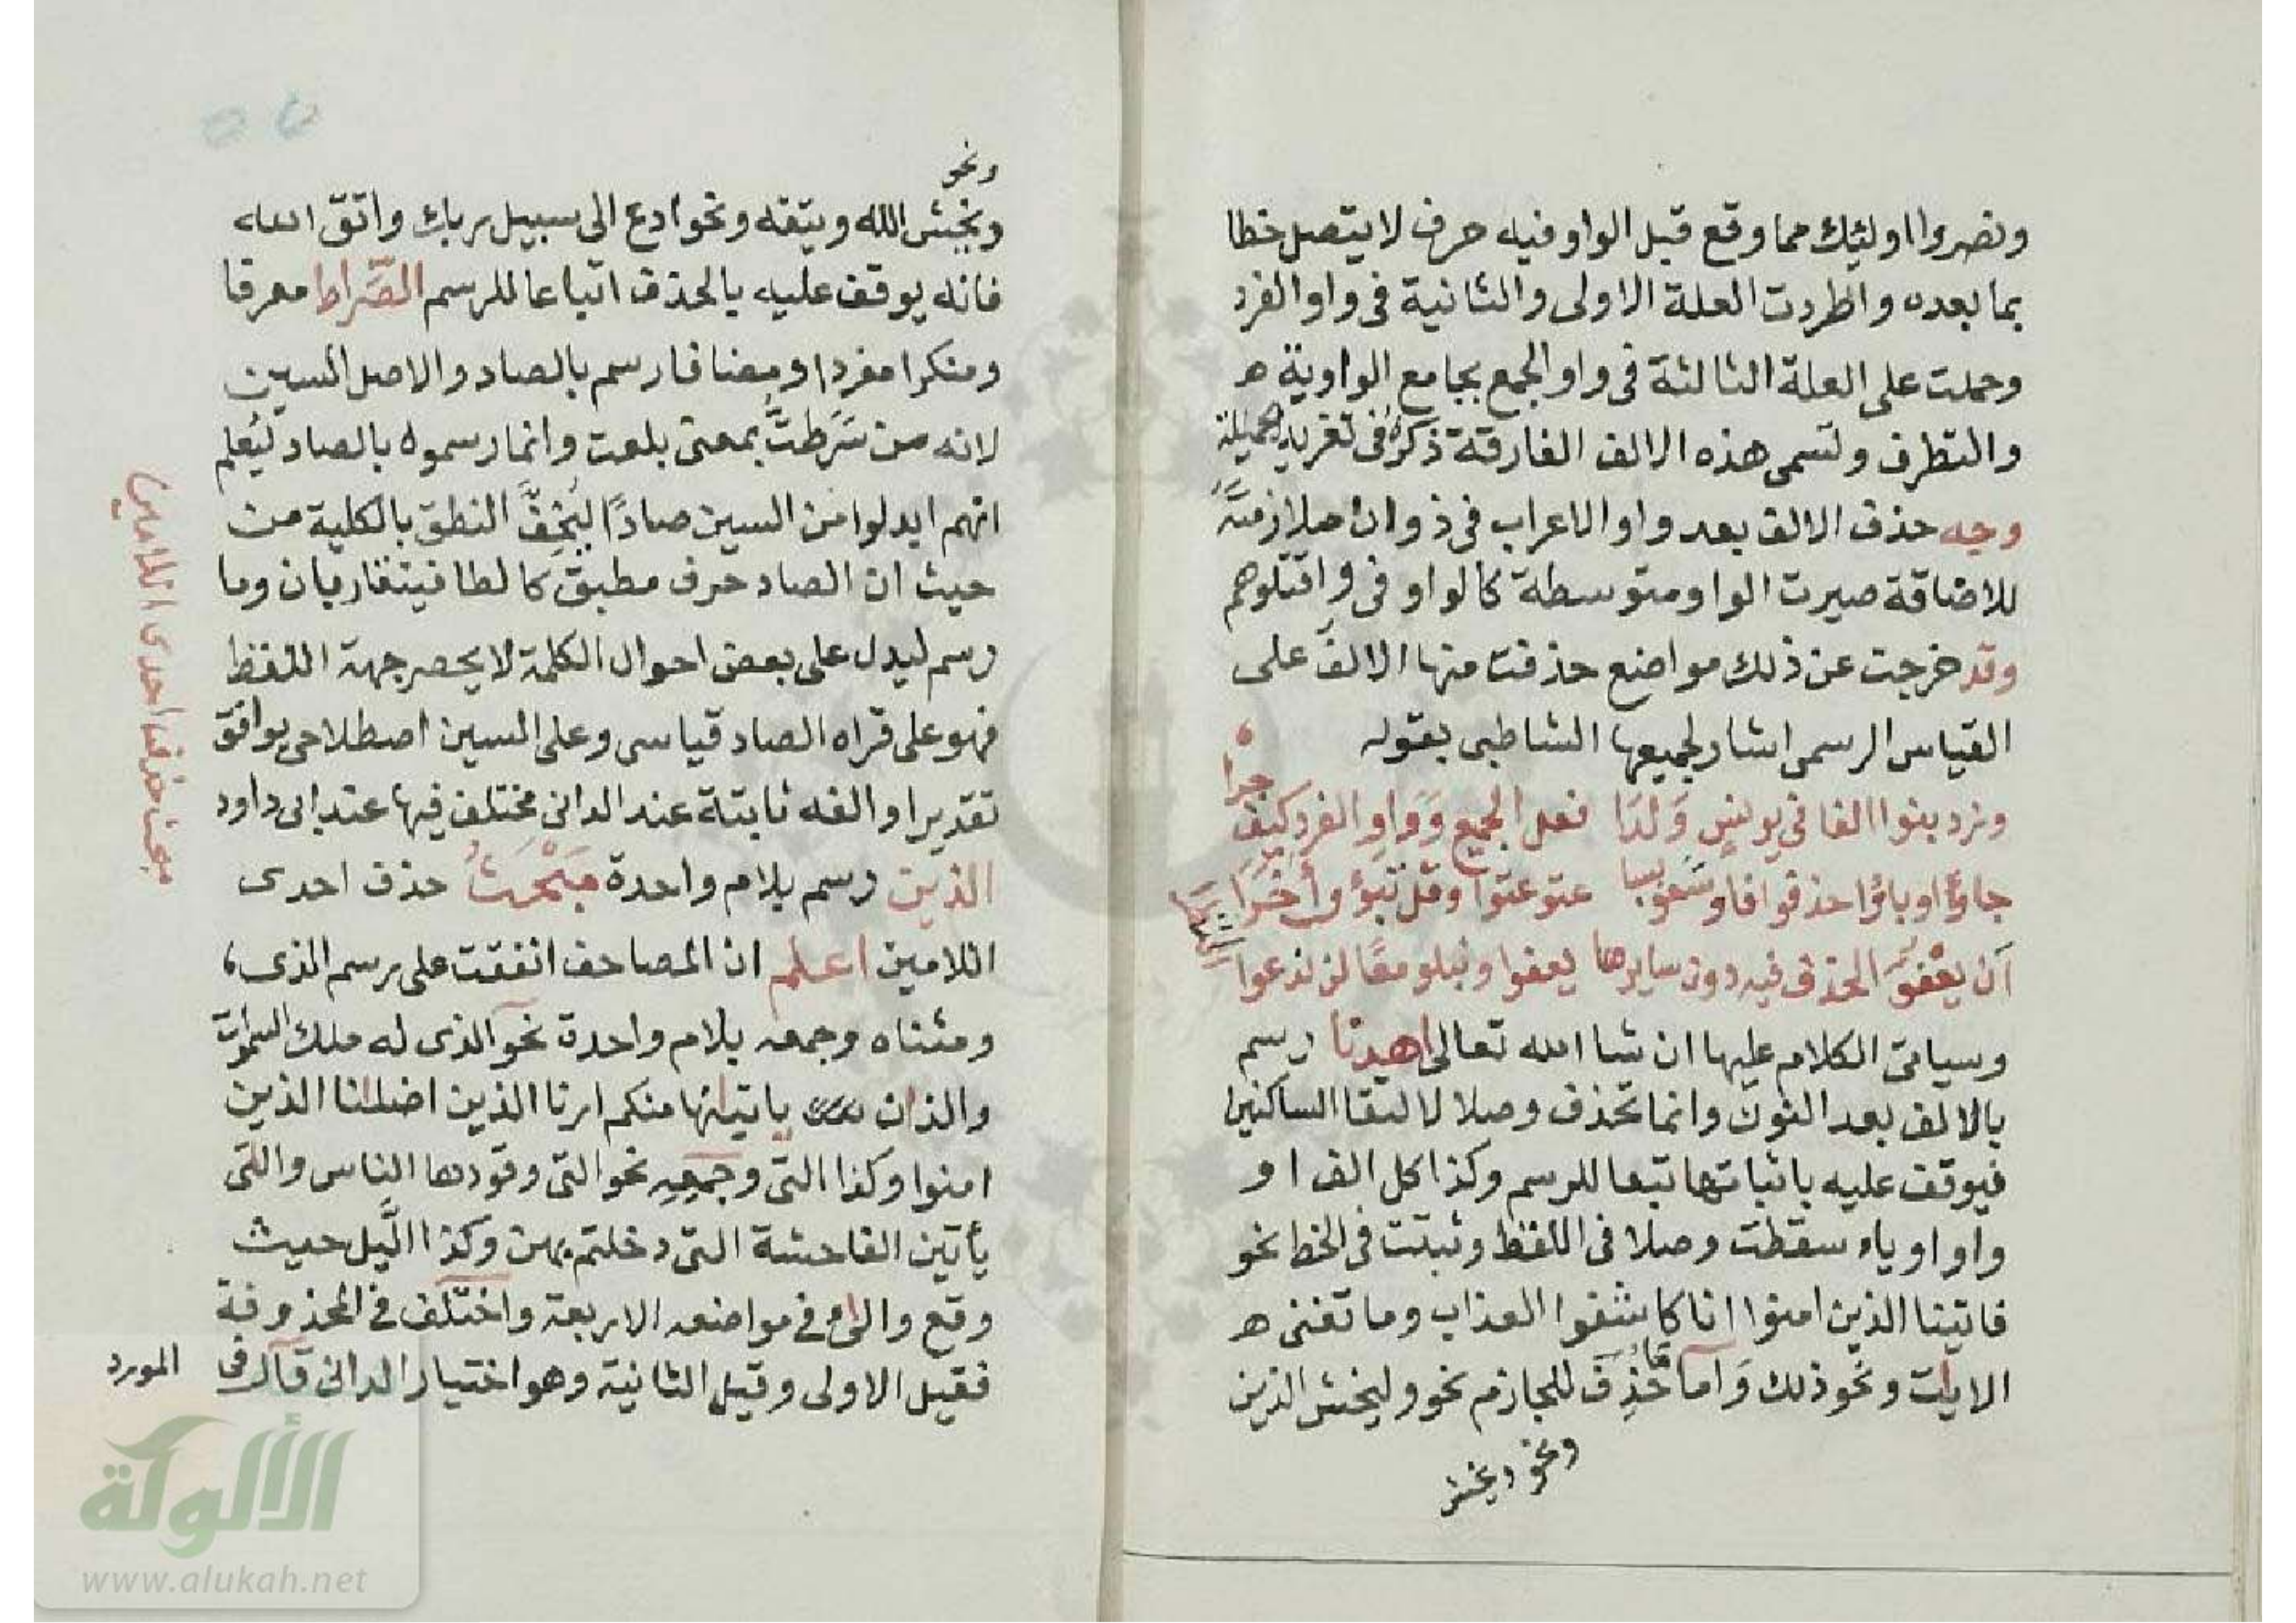 ونصروا اولئك مما وقع قبل الواو فيه حرف لا يتصل خطا
بما بعده واطردت العلة الاولى والثانية فى واو الفرد
وحملت على العلة الثالثة فى واو الجمع بجامع الواوية ه
والتطرف وتسمى هذه الالف الفارقة ذكره فى تقريب
وجه حذف الالف بعد واو الاعراب فى ذو ان ملازمته
للاضافة صيرت الواو متوسطة كالواو فى واقتلوهم
وقد خرجت عن ذلك مواضع حذفت منها الالف على
القياس الرسمى اشار لجميعها الشاطبى بقوله
وزد بنوا الفا فى يونس ولدا فعل الجميع وواو الفرد كيف
جرا
جاؤا وباؤا احذفوا فاو سعو بسبا عتو عتوا وقل تبوؤ أخرا
أن يعفو الحذف فيه دون سايرها يعفوا ونبلو معا لن ندعوا
النظرا
وسياتى الكلام عليها ان شا الله تعالى اهدنا رسم
بالالف بعد النون وانما تحذف وصلا لالتقا الساكنين
فيوقف عليه باثباتها تبعا للرسم وكذا كل الف او
واو او ياء سقطت وصلا فى اللفظ وثبتت فى الخط نحو
فاتينا الذين امنوا انا كاشفوا العذاب وما تغنى ه
الايات ونحو ذلك واما ما حذف للجازم نحو وليخش الذين
ونحو ويخش
ونحو
ويخش الله ويتقه ونحو ادع الى سبيل ربك واتق الله
فانه يوقف عليه بالحذف اتباعا للرسم الصراط معرفا
ومنكرا مفردا ومضافا رسم بالصاد والاصل السين
لانه من سرطت بمعنى بلعت وانما رسموه بالصاد ليعلم
انهم ابدلوا من السين صادا ليخف النطق بالكلية من
حيث ان الصاد حرف مطبق كالطا فيتقاربان وما
رسم ليدل على بعض احوال الكلمة لا يحصر جهة اللفظ
فهو على قراه الصاد قياسى وعلى السين اصطلاحى يوافق
تقديرا والفه ثابتة عند الدانى مختلف فيها عند ابى داود
الذين رسم بلام واحدة مبحث حذف احدى
اللامين اعلم ان المصاحف اتفقت على رسم الذى
ومثناه وجمعه بلام واحدة نحو الذى له ملك السموات
والذان ياتيانها منكم ارنا الذين اضلانا الذين
امنوا وكذا التى وجمعه نحو التى وقودها الناس والتى
يأتين الفاحشة التى دخلتم بهن وكذا اليل حيث
وقع والئ فى مواضعه الاربعة واختلف فى المحذوفة
فقيل الاولى وقيل الثانية وهو اختيار الدانى قال فى
المورد
مبحث حذف احدى اللامين
الألوكة
www.alukah.net